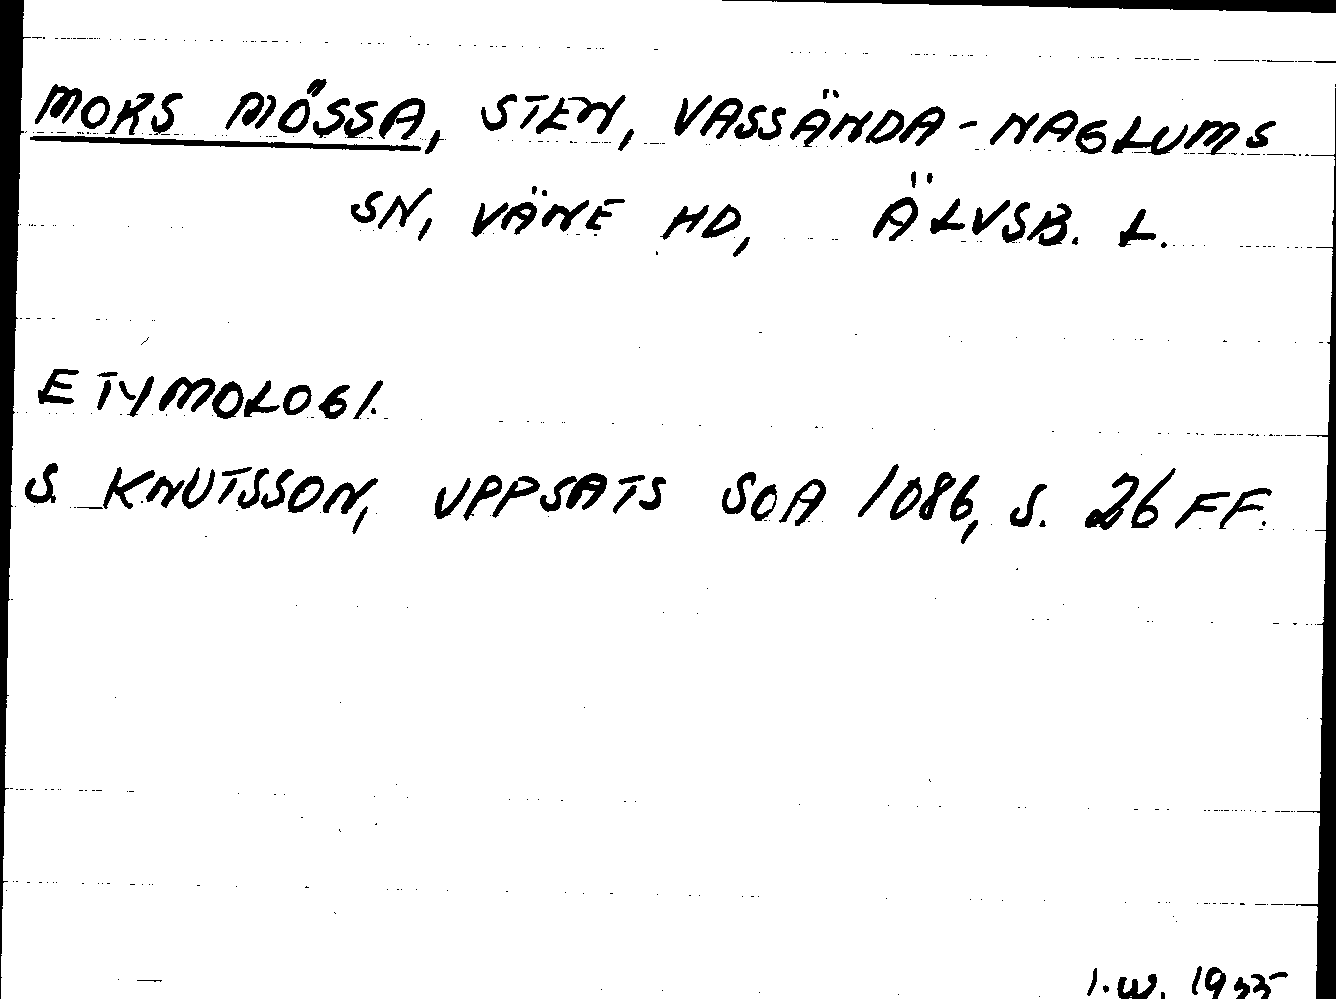 MORS MÖSSA, STEN, VASSÄNDA-NAGLUMS
SN, VÄNE HD, ÄLVSB. L.
ETYMOLOGI.
S. KNUTSSON, UPPSATS SOA 1086, S. 26 FF.
I.W. 1955